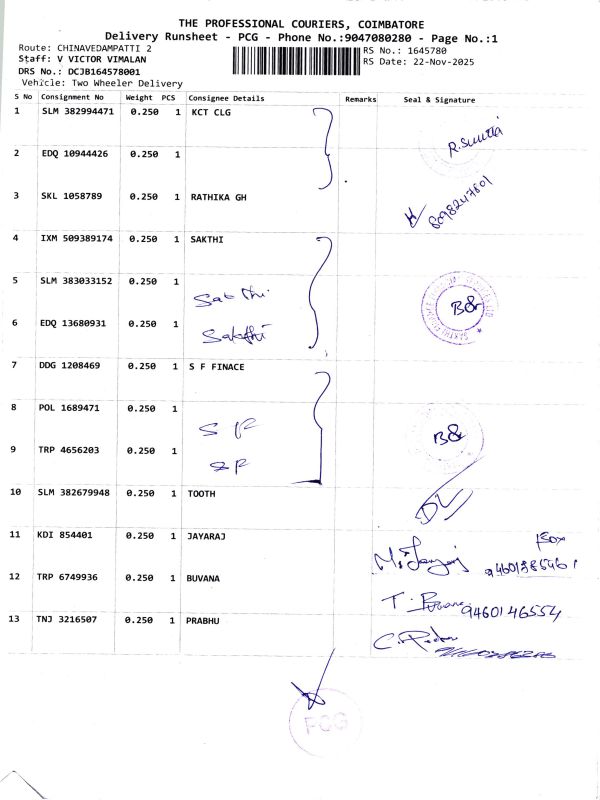 THE PROFESSIONAL COURIERS, COIMBATORE
Delivery Runsheet - PCG - Phone No.:9047080280 - Page No.:1
Route: CHINAVEDAMPATTI 2
RS No.: 1645780
Staff: V VICTOR VIMALAN
RS Date: 22-Nov-2025
DRS No.: DCJB164578001
Vehicle: Two Wheeler Delivery
S No Consignment No Weight PCS Consignee Details Remarks Seal & Signature
1 SLM 382994471 0.250 1 KCT CLG
2 EDQ 10944426 0.250 1
3 SKL 1058789 0.250 1 RATHIKA GH 8098247601
4 IXM 509389174 0.250 1 SAKTHI
5 SLM 383033152 0.250 1 Sakthi
6 EDQ 13680931 0.250 1 Sakthi
7 DDG 1208469 0.250 1 S F FINACE
8 POL 1689471 0.250 1 SF
9 TRP 4656203 0.250 1 SF
10 SLM 382679948 0.250 1 TOOTH
11 KDI 854401 0.250 1 JAYARAJ
12 TRP 6749936 0.250 1 BUVANA 9460146554
13 TNJ 3216507 0.250 1 PRABHU
PCG